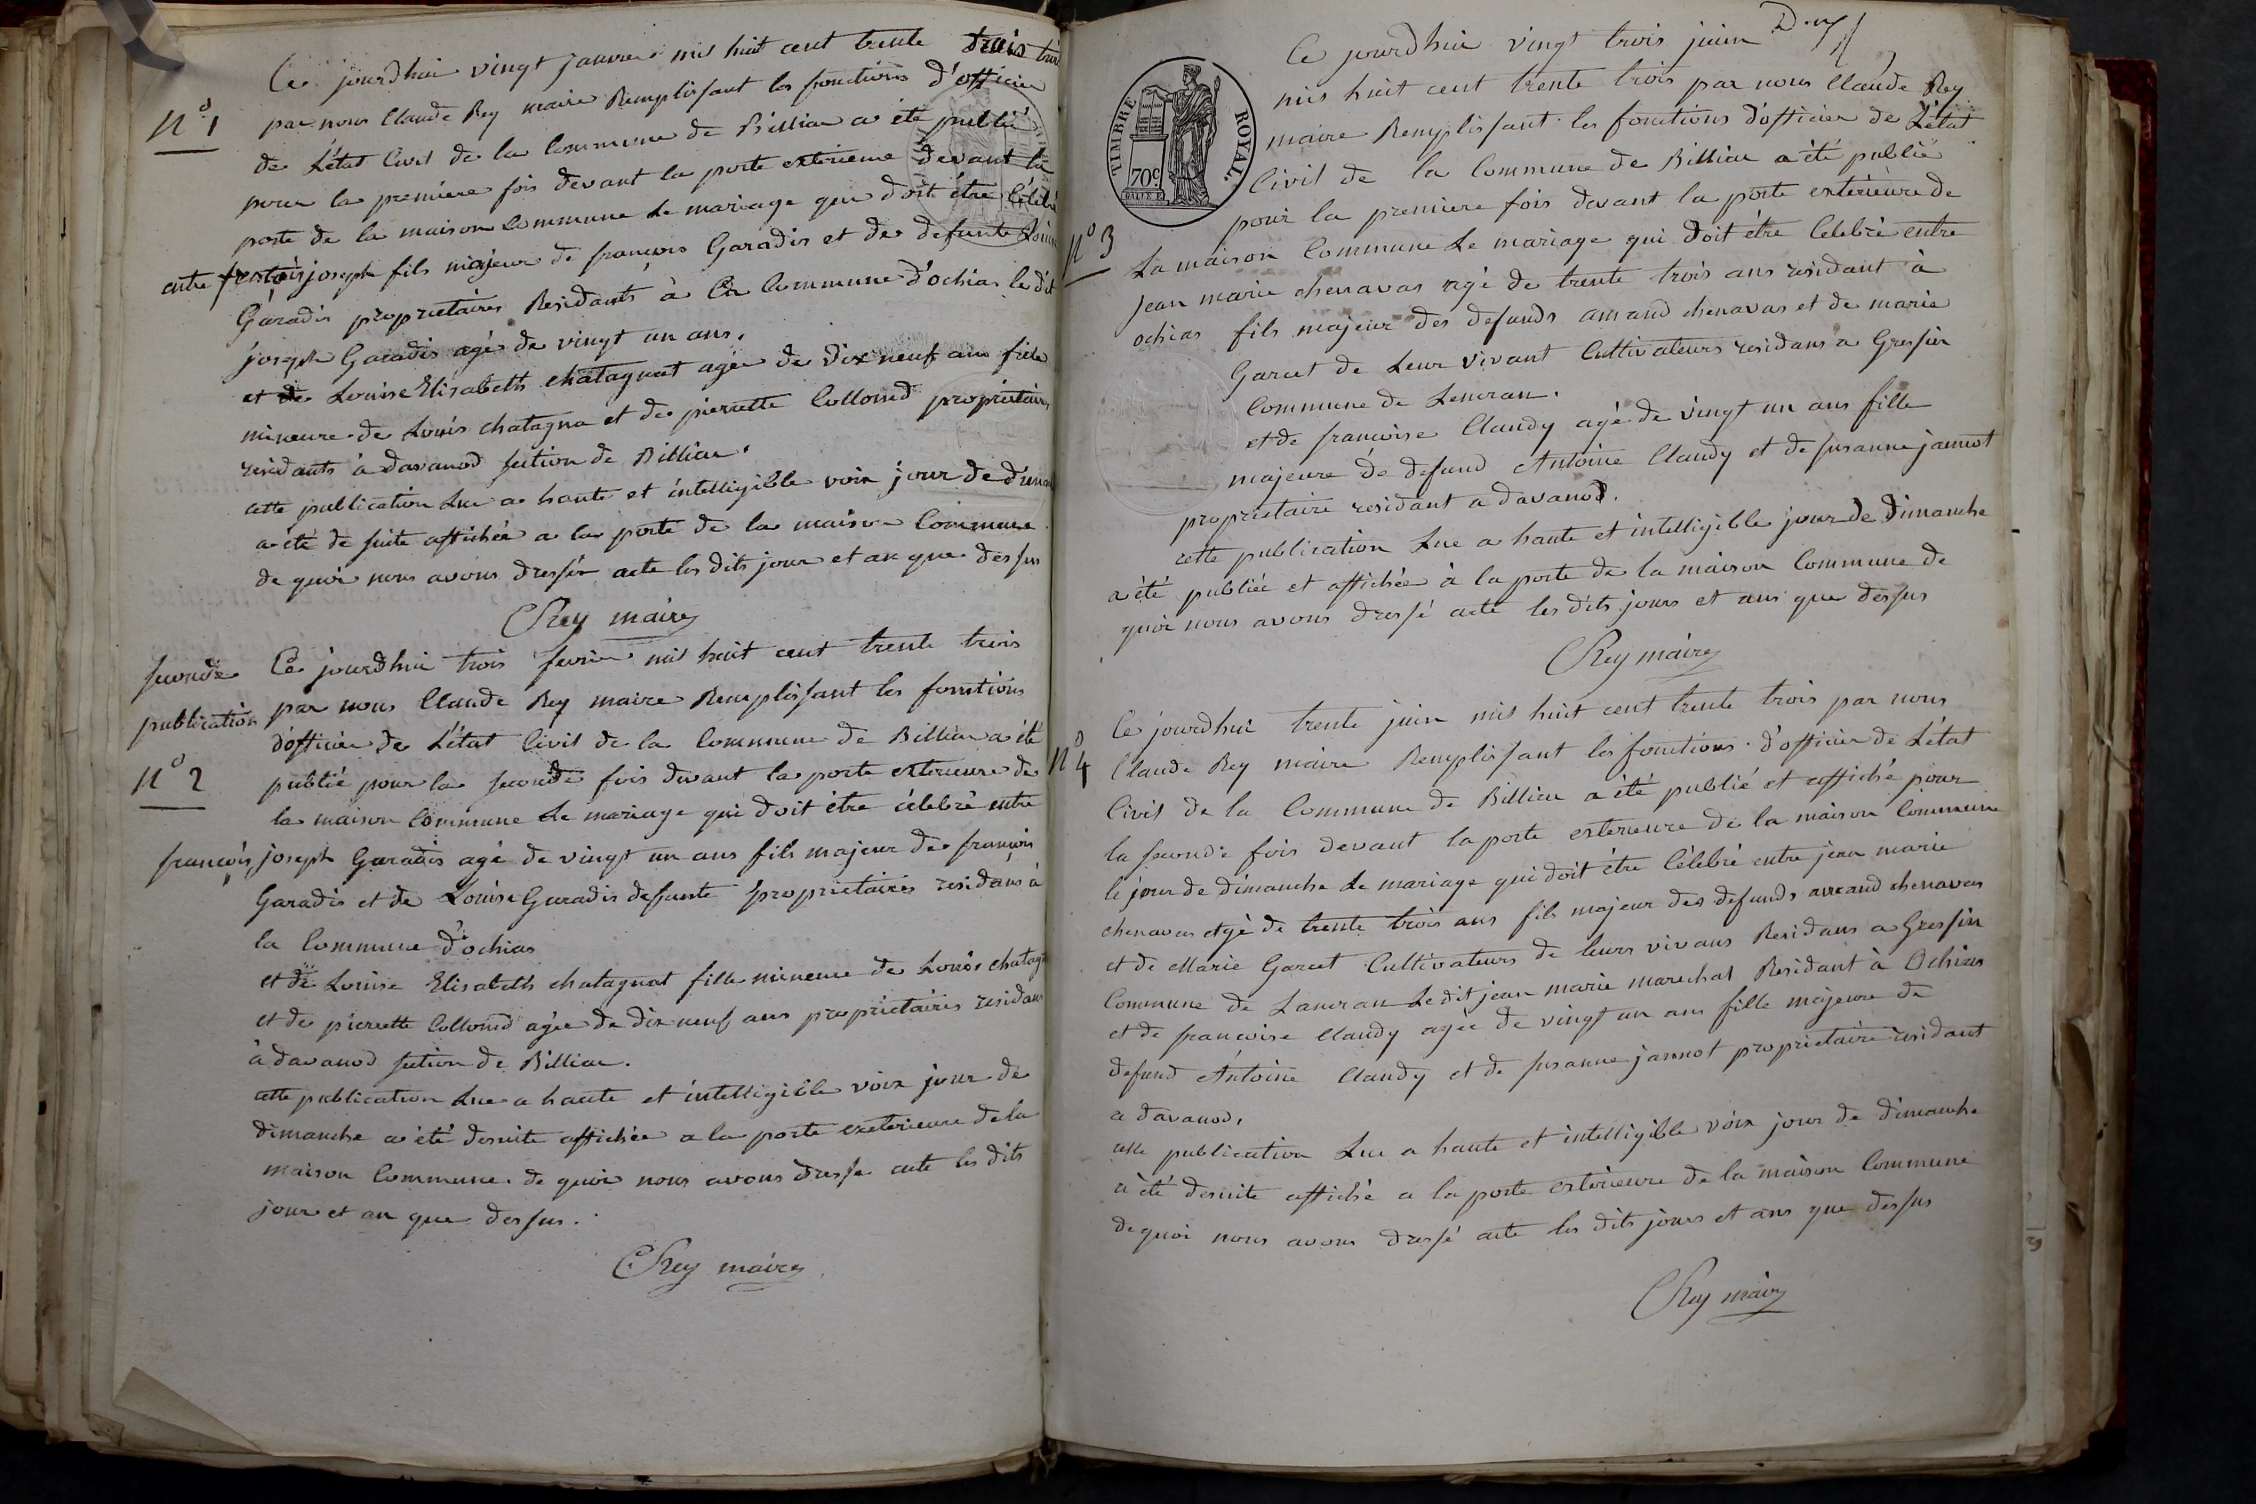 Ce jourdhui vingt janvier mil huit cent trente trois
N° 1
par nous Claude Rey maire Remplissant les fonctions d'officier
de L'état Civil de la Commune de Billiat a été publié
pour la premiere fois devant la porte exterieure devant la
porte de la maison Commune Le mariage qui doit être Célébré
entre françois joseph fils majeur de françois Garadis et de defunte Louise
Garadis proprietaires Residants à la Commune d'ochias le dit
joseph Garadis agé de vingt un ans.
et de Louise Elisabeth chatagnat agée de dix neuf ans fille
mineure de Louis chatagna et de pierrette Collomd proprietaires
residants à davanod section de Billiat.
cette publication Lue a haute et intelligible voix jour de diman
a été de suite affichée a la porte de la maison Commune
de quoi nous avons dressér acte les dits jour et an que dessus
CRey maire
seconde
publication
N° 2
Ce jourdhui trois fevrier mil huit cent trente trois
par nous Claude Rey maire Remplissant les fonctions
d'officier de L'état Civil de la Commune de Billiat a été
publié pour la seconde fois devant la porte exterieure de
la maison Commune Le mariage qui doit être célebré entre
françois joseph Garadis agé de vingt un ans fils majeur de françois
Garadis et de Louise Garadis deffunte proprietaires residans à
la Commune d'ochias
et de Louise Elisabeth chatagnat fille mineure de Louis chatag
et de pierrette Collomd agée de dix neuf ans proprietaires residans
à davanod section de Billiat.
cette publication Lue a haute et intelligible voix jour de
dimanche a été desuite affichée a la porte exeterieure de la
maison Commune de quoi nous avons dresse acte les dits
jour et an que dessus.
CRey maire
TIMBRE ROYAL.
70c
N° 3
Ce jourdhui vingt trois juin
mis huit cent trente trois par nous Claude Rey
maire Remplissant les fonctions d'officier de L'état
Civil de la Commune de Billiat a été publié
pour la premiere fois devant la porte exterieure de
La maison Commune Le mariage qui doit être Celebré entre
Jean marie chenavas agé de trente trois ans residant à
ochias fils majeur des defunds amand chenavas et de marie
Garcet de Leur vivant Cultivateurs residans a Gressin
Commune de Lancran.
et de francoise Claudy agé de vingt un ans fille
majeure de defund Antoine Claudy et de susanne jannot
proprietaire residant a davanod.
cette publication Lue a haute et intelligible jour de dimanche
a été publiée et affichée à la porte de la maison Commune de
quoi nous avons dressé acte les dits jours et ans que dessus
CRey maire
N° 4
Ce jourdhui trente juin mil huit cent trente trois par nous
Claude Rey maire Remplissant les fonctions d'officier de L'état
Civil de la Commune de Billiat a été publié et affiché pour
la seconde fois devant la porte exterieure de la maison Commune
le jour de dimanche Le mariage qui doit être Célebré entre jean marie
chenavas agé de trente trois ans fils majeur des defunds amand chenavas
et de Marie Garcet Cultivateurs de leurs vivans Residans a Gressin
Commune de Lancran Le dit jean marie marechal Residant à Ochias
et de francoise Claudy agée de vingt un ans fille majeure de
defund Antoine Claudy et de susanne jannot proprietaire residant
a davanod.
cette publication Lue a haute et intelligible voix jour de dimanche
a été desuite affiché a la porte exterieure de la maison Commune
de quoi nous avons dressé acte les dits jours et ans que dessus
CRey maire